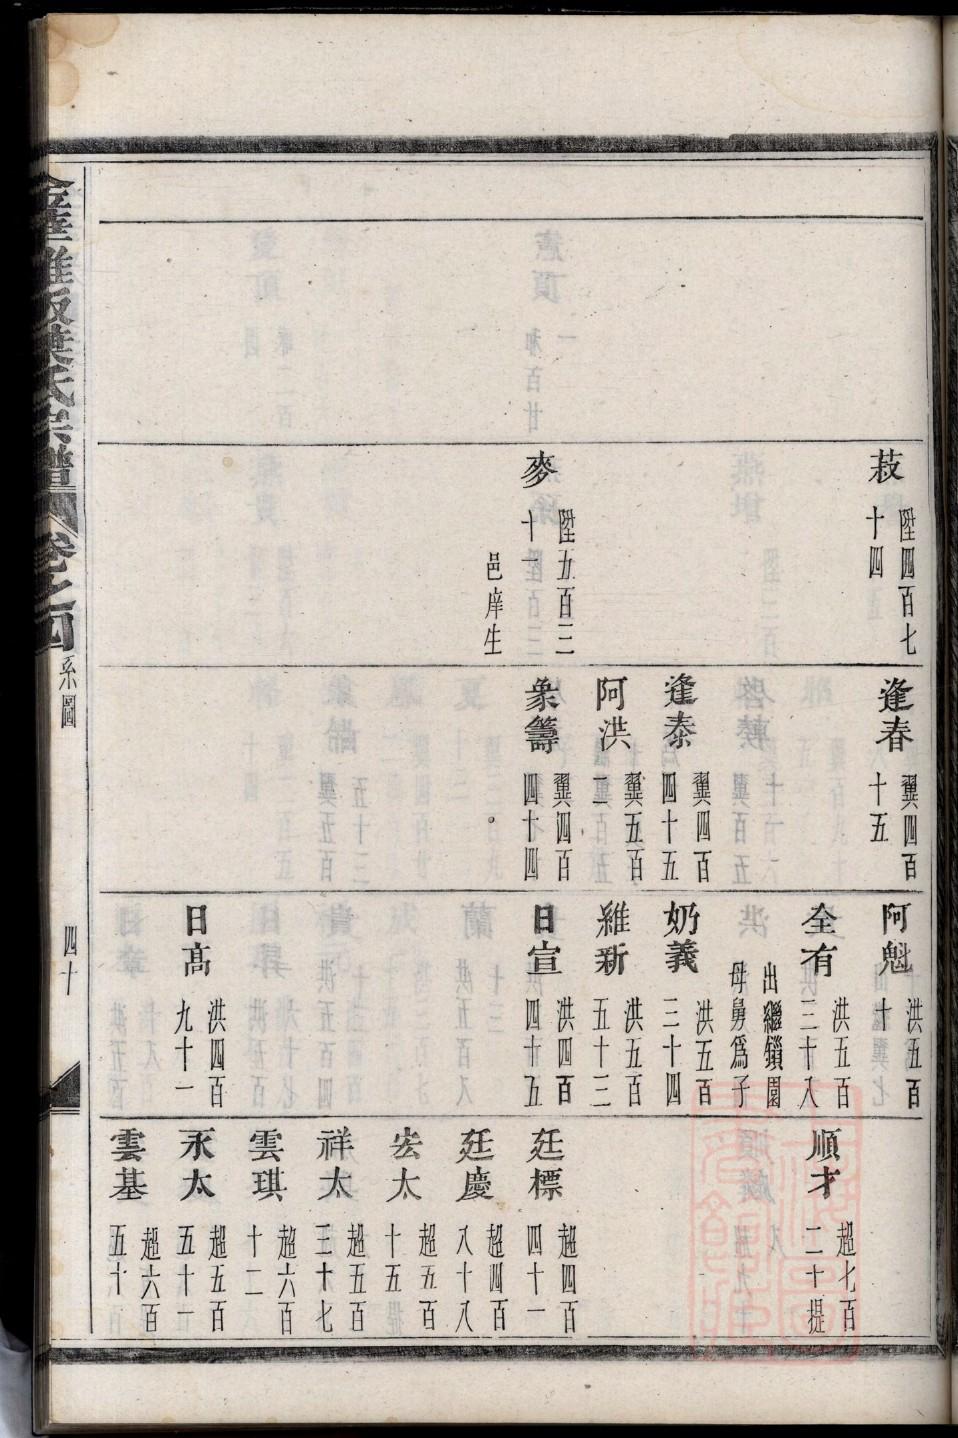 菽 陞四百七十四
麥 陞五百三十一 邑庠生
逢春 翼四百十五
逢泰 翼四百四十五
阿洪 翼五百二
衆籌 翼四百四十四
阿魁 洪五百十
全有 洪五百三十八 出繼鎖園母舅爲子
奶義 洪五百三十四
維新 洪五百五十三
日宣 洪四百四十五
日高 洪四百九十一
順才 超七百二十提
廷標 超四百四十一
廷慶 超四百八十八
宏太 超五百十五提
祥太 超五百三十七
雲琪 超六百十二
永太 超五百五十一
雲基 超六百五十
葉氏宗譜 卷之四 系圖 四十